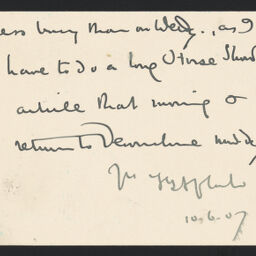 less busy than on Wedy., as I
have to do a long Horse Show
article that morning &
return to Devonshire midday
10.6.07